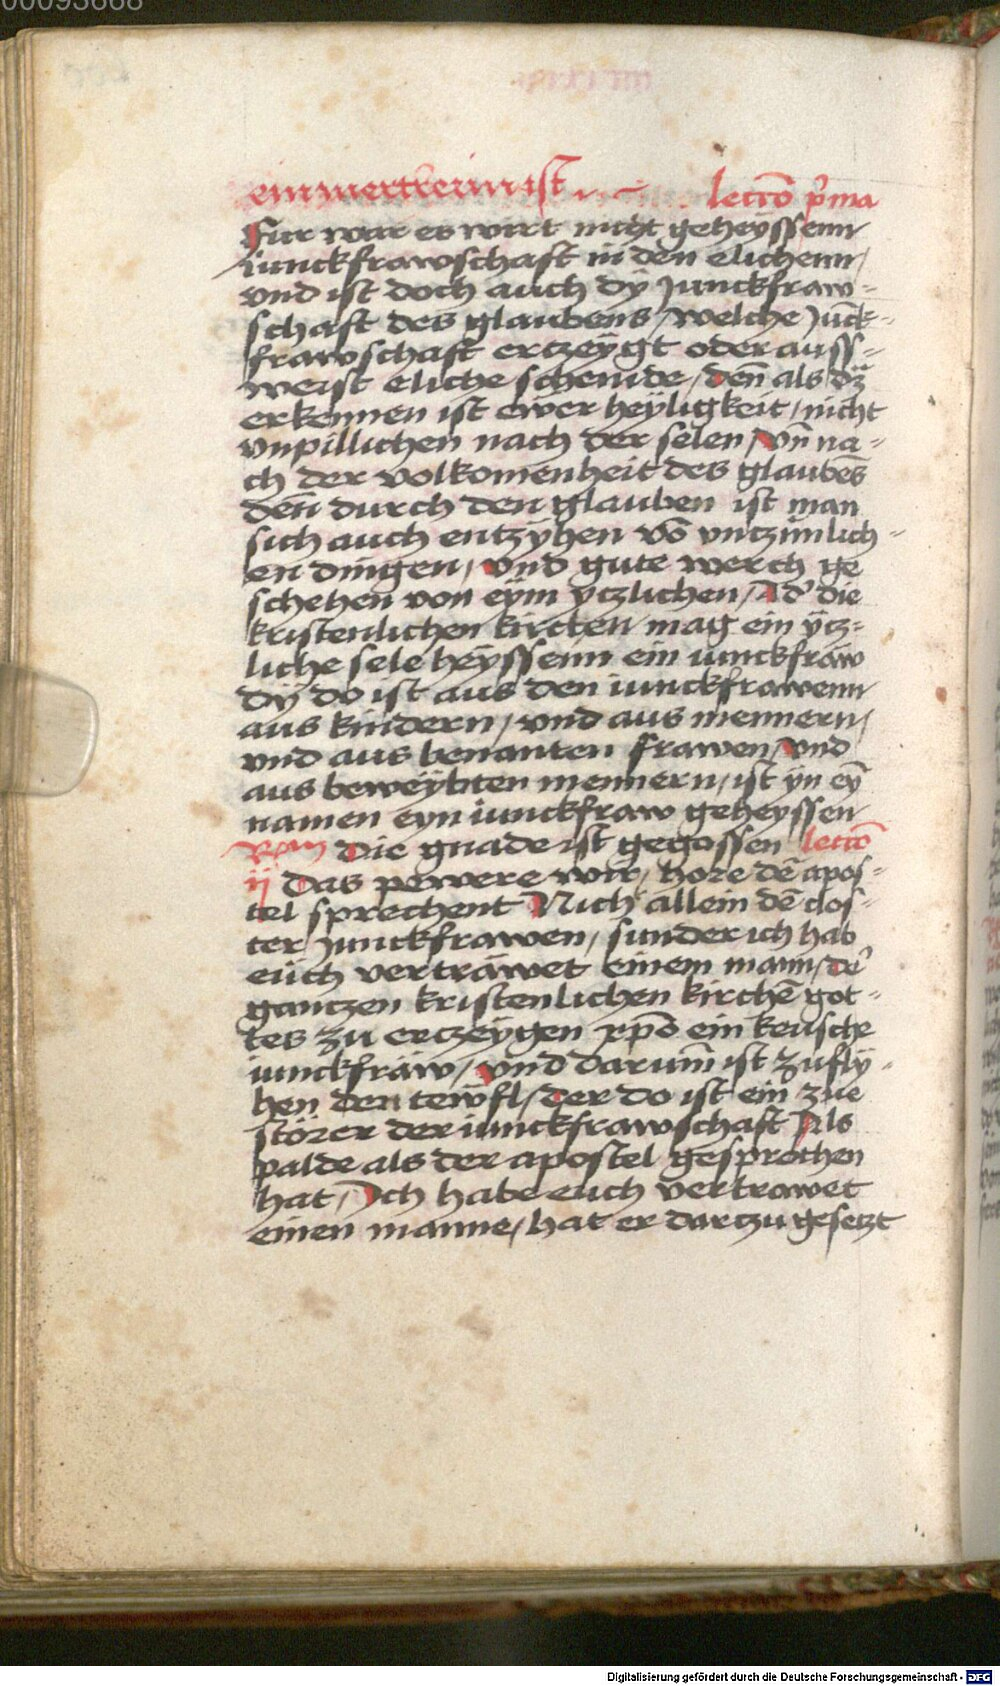 00093668
ein mertrerin ist lectiō p̄ma
Fur war es wirt nicht geheyssenn
iunckfrawschaft in den elichenn /
vnd ist doch auch dy Junckfraw-
schaft des glaubens / welche Jūck-
frawschaft ertzeygt oder auss-
weist eliche scheinide / den̄ als dz
erkennen ist ewer heyligkeit / nicht
vnpillichen nach der selen / vn̄ na-
ch der volkomenheit des glaubēs
den̄ durch den glauben ist man
sich auch entzyhen vō vntzimlich-
en dingen / vnd gute werch ge
schehen von eym ytzlichen / Ad' die
kristenlichen kirchen mag ein ytz-
liche sele heyssenn ein iunckfraw
dy do ist aus den iunckfrawenn
aus kindern / vnd aus mennern /
vnd aus benanten frawen / vnd
aus beweybten mennern / ist yn eȳ
namen eyn iunckfraw geheyssen
Rm̄ Die gnade ist gegossen lectiō
ij Das pewere wir / hore dē apos-
tel sprechent Nich allein dē clos-
ter Junckfrawen / sunder ich hab
euch vertrawet einem mann / de'
gantzen kristenlichen kirchē got-
tes zu ertzeygen xpō ein keusche
iunckfraw / vnd darum̄ ist zufly-
hen den tewfl / der do ist ein zue
störer der iunckfrawschaft Als
palde als der apostel gesprochen
hat / Ich habe euch vertrawet
einen manne / hat er dartzu gesetzt
Digitalisierung gefördert durch die Deutsche Forschungsgemeinschaft - DFG